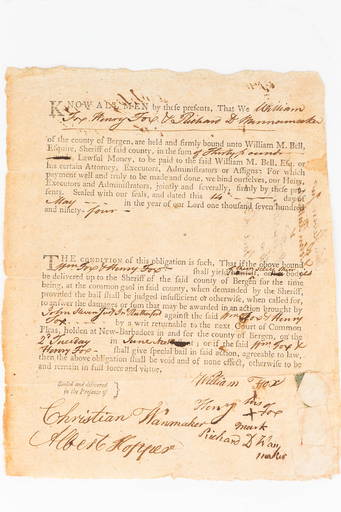 KNOW ALL MEN by these presents, That We William
Fox Henry Fox & Richard D Wannamaker
of the county of Bergen, are held and firmly bound unto William M. Bell,
Esquire, Sheriff of said county, in the sum of Thirty pounds
Lawful Money, to be paid to the said William M. Bell, Esq. or
his certain Attorney, Executors, Administrators or Assigns: For which
payment well and truly to be made and done, we bind ourselves, our Heirs,
Executors and Administrators, jointly and severally, firmly by these pre-
sents. Sealed with our seals, and dated this 14 day of
May in the year of our Lord one thousand seven hundred
and ninety-four
THE CONDITION of this obligation is such, That if the above bound
Wm Fox & Henry Fox shall yield
be delivered up to the Sheriff of the said county of Bergen for the time
being, at the common gaol in said county, when demanded by the Sheriff,
provided the bail shall be judged insufficient or otherwise, when called for,
to answer the damages or sum that may be awarded in an action brought by
John against the said Wm Fox & Henry
Fox by a writ returnable to the next Court of Common
Pleas, holden at New-Barbadoes in and for the county of bergen, on the
2d Tuesday in June or if the said Wm Fox &
Henry Fox shall give special bail in said action, agreeable to law,
then the above obligation shall be void and of none effect, otherwise to be
and remain in full force and virtue.
Sealed and delivered
in the Presence of
William Fox
Henry his Fox
+
mark
Christian Wanmaker
Richard D Wan
maker
Albert Hopper